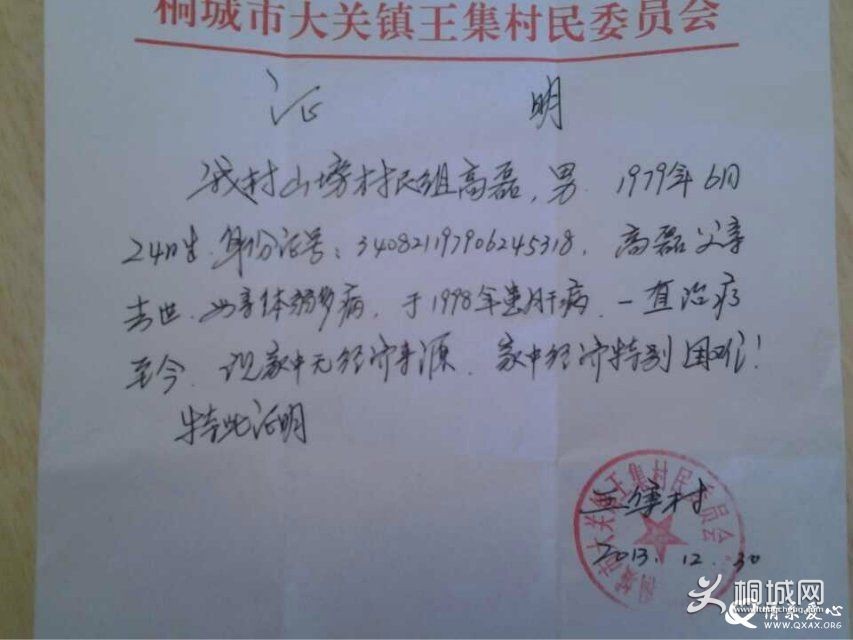 桐城市大关镇王集村民委员会
证 明
我村山塝村民组高磊,男. 1979年6月
24日生.身份证号:340821197906245318. 高磊父亲
去世.母亲体弱多病.于1998年患肝病.一直治疗
至今.现家中无经济来源.家中经济特别困难!
特此证明
王集村
2013.12.30
桐城市大关镇王集村民委员会
桐城网
情系爱心
WWW.QXAX.ORG